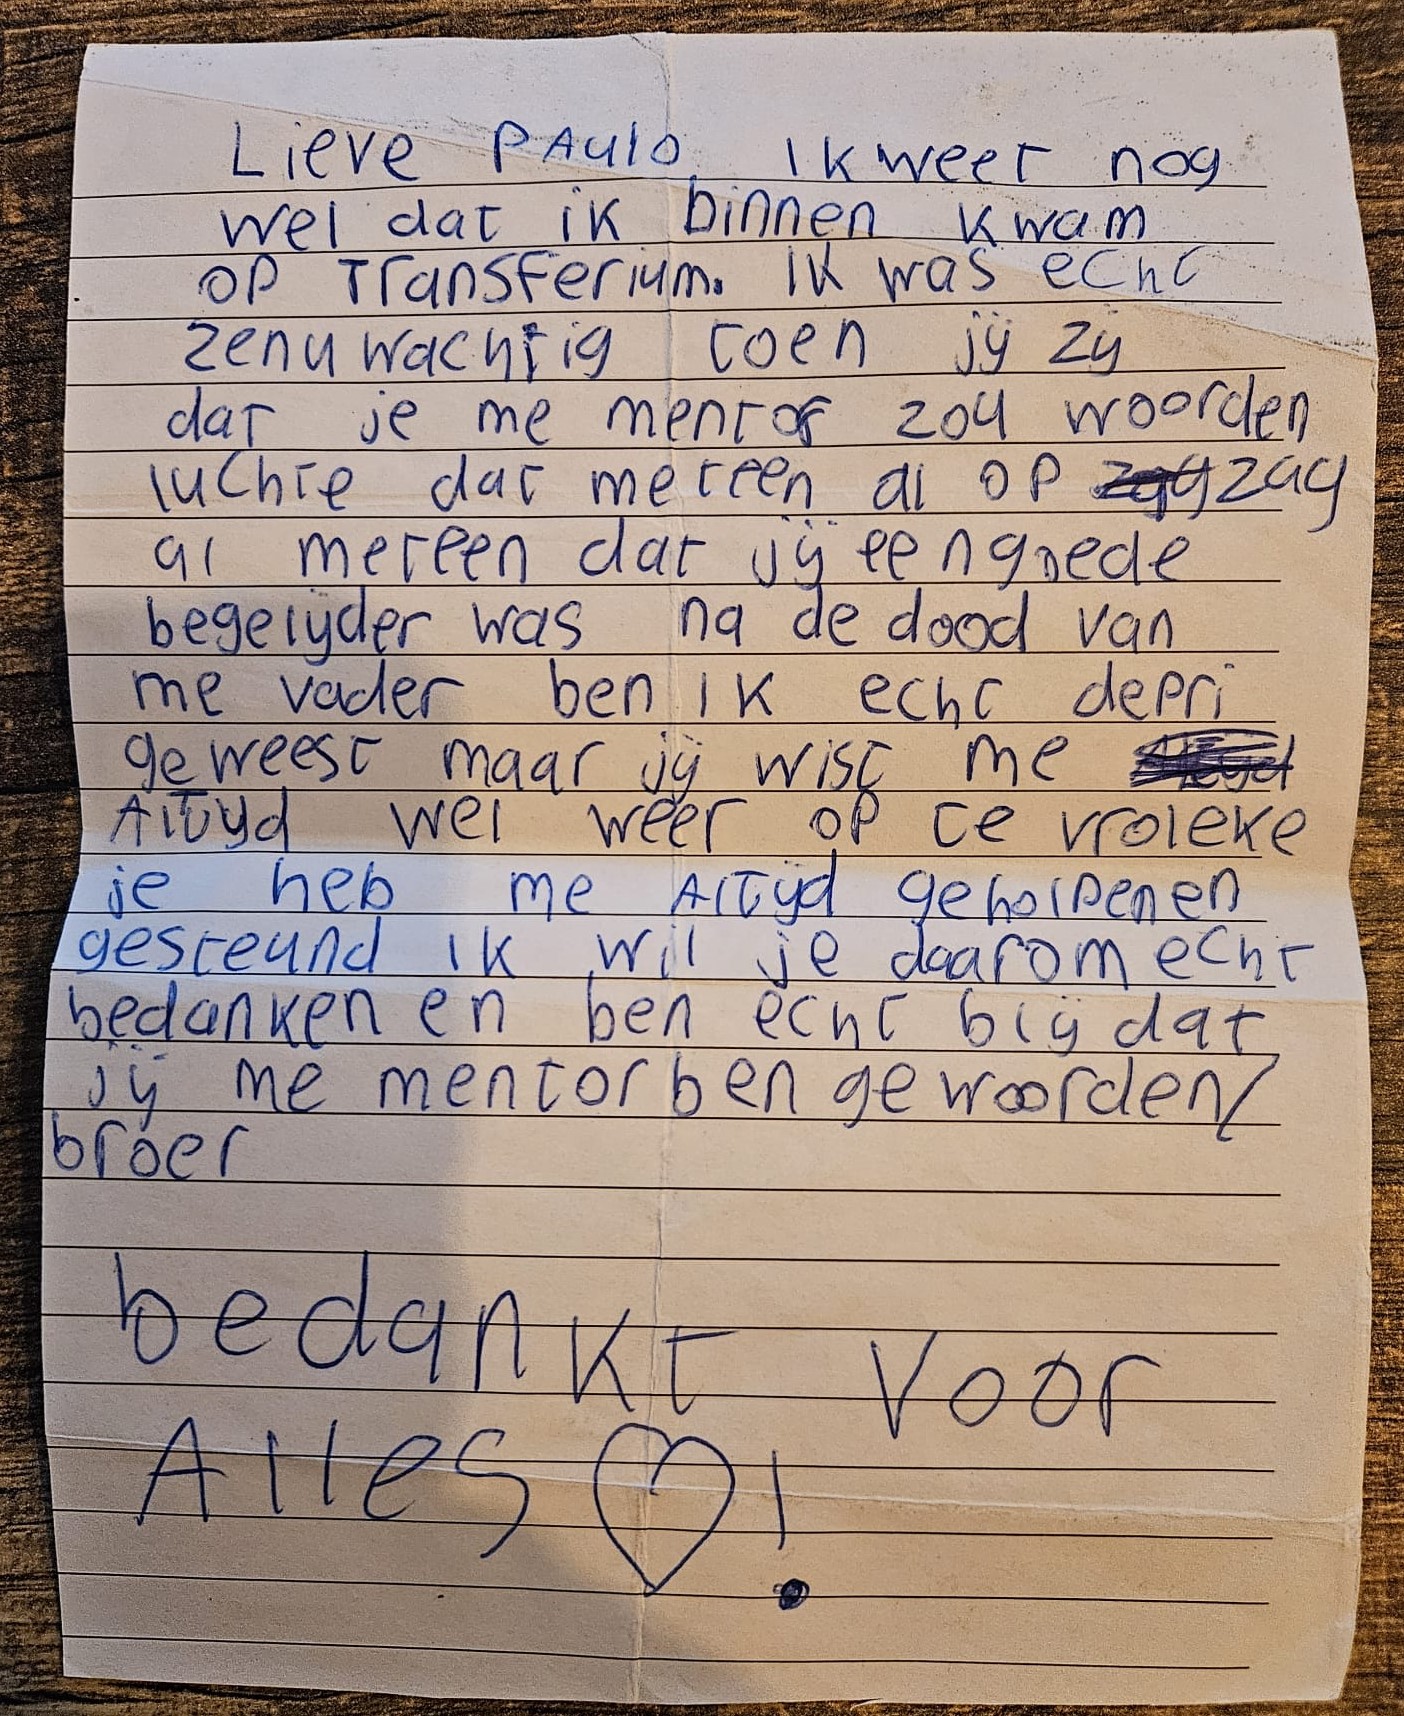 Lieve PAulo ik weet nog
wel dat ik binnen kwam
op Transferium. Ik was echt
zenuwachtig toen jij zij
dat je me mentor zou woorden
luchte dat meteen al op zag
al meteen dat jij een goede
begelijder was na de dood van
me vader ben ik echt depri
geweest maar jij wist me
Altijd wel weer op te vroleke
je heb me Altijd geholpen en
gesteund ik wil je daarom echt
bedanken en ben echt blij dat
jij me mentor ben gewoorden/
broer
bedankt voor
Alles ♡!